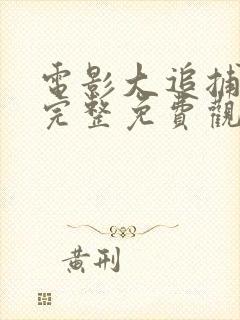 電影大追捕
完整免費觀
黃刑